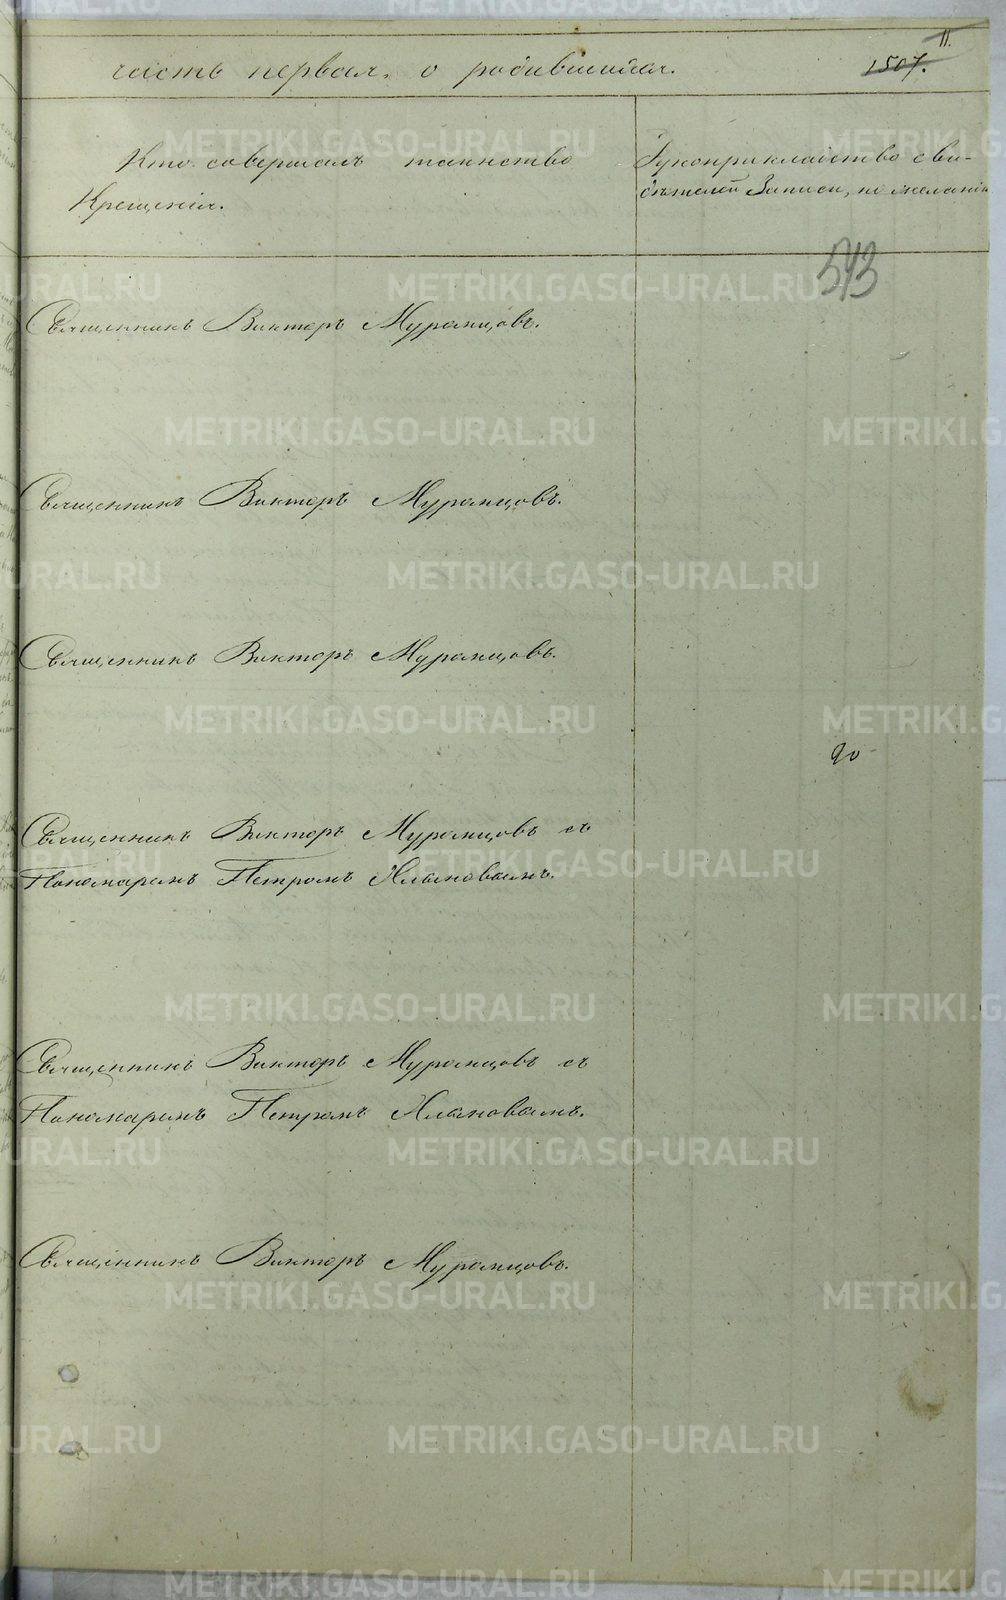 11.
часть первая, о родившихся. 1507.
Кто совершалъ таинство
Крещенія.
Рукоприкладство сви-
дѣтелей Записи, по желанію
543
Священникъ Викторъ Муромцовъ.
Священникъ Викторъ Муромцовъ.
Священникъ Викторъ Муромцовъ.
90
Священникъ Викторъ Муромцовъ съ
Пономаремъ Петромъ Хламовымъ.
Священникъ Викторъ Муромцовъ съ
Пономаремъ Петромъ Хламовымъ.
Священникъ Викторъ Муромцовъ.
METRIKI.GASO-URAL.RU